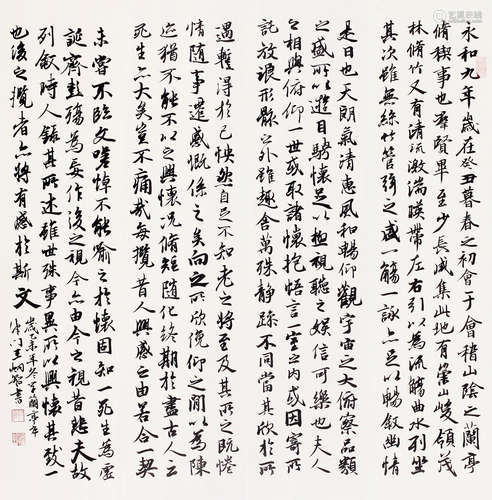 永和九年歲在癸丑暮春之初會于會稽山陰之蘭亭
脩稧事也羣賢畢至少長咸集此地有崇山峻領茂
林脩竹又有清流激湍暎帶左右引以為流觴曲水列坐
其次雖無絲竹管弦之盛一觴一詠亦足以暢叙幽情
是日也天朗氣清惠風和暢仰觀宇宙之大俯察品類
之盛所以遊目騁懷足以極視聽之娛信可樂也夫人
之相與俯仰一世或取諸懷抱悟言一室之内或因寄所
託放浪形骸之外雖趣舍萬殊静躁不同當其欣於所
遇蹔得於己怏然自足不知老之將至及其所之既惓
情隨事遷感慨係之矣向之所欣俛仰之間以為陳
迹猶不能不以之興懷況脩短隨化終期於盡古人云
死生亦大矣豈不痛哉每攬昔人興感之由若合一契
未嘗不臨文嗟悼不能喻之於懷固知一死生為虛
誕齊彭殤為妄作後之視今亦由今之視昔悲夫故
列叙時人錄其所述雖世殊事異所以興懷其致一
也後之攬者亦將有感於斯文